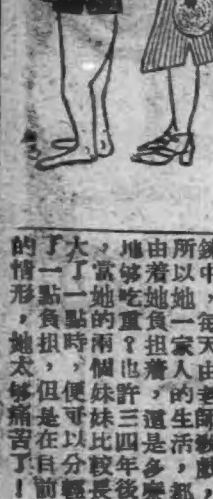 鍊中，每天由老師教戲，
所以她一家人的生活，都
由着她負担着，這是多麽
地够吃重？也許三四年後
，當她的兩個妹妹比較長
大了一點時，便可以分輕
了一點負担，但是在目前
的情形，她太够痛苦了！